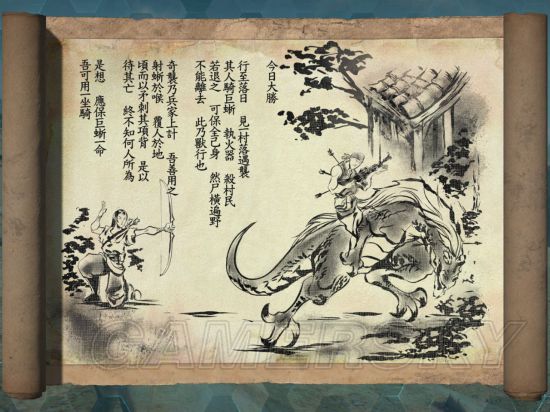 今日大勝
行至落日　見一村落遇襲
其人騎巨蜥　執火器　殺村民
若退之　可保全己身　然尸橫遍野
不能離去　此乃獸行也
奇襲乃兵家上計　吾善用之
射蜥於喉　覆人於地
頃而以矛刺其項背　是以
待其亡　終不知何人所為
是想　應保巨蜥一命
吾可用一坐騎
GAMERSKY